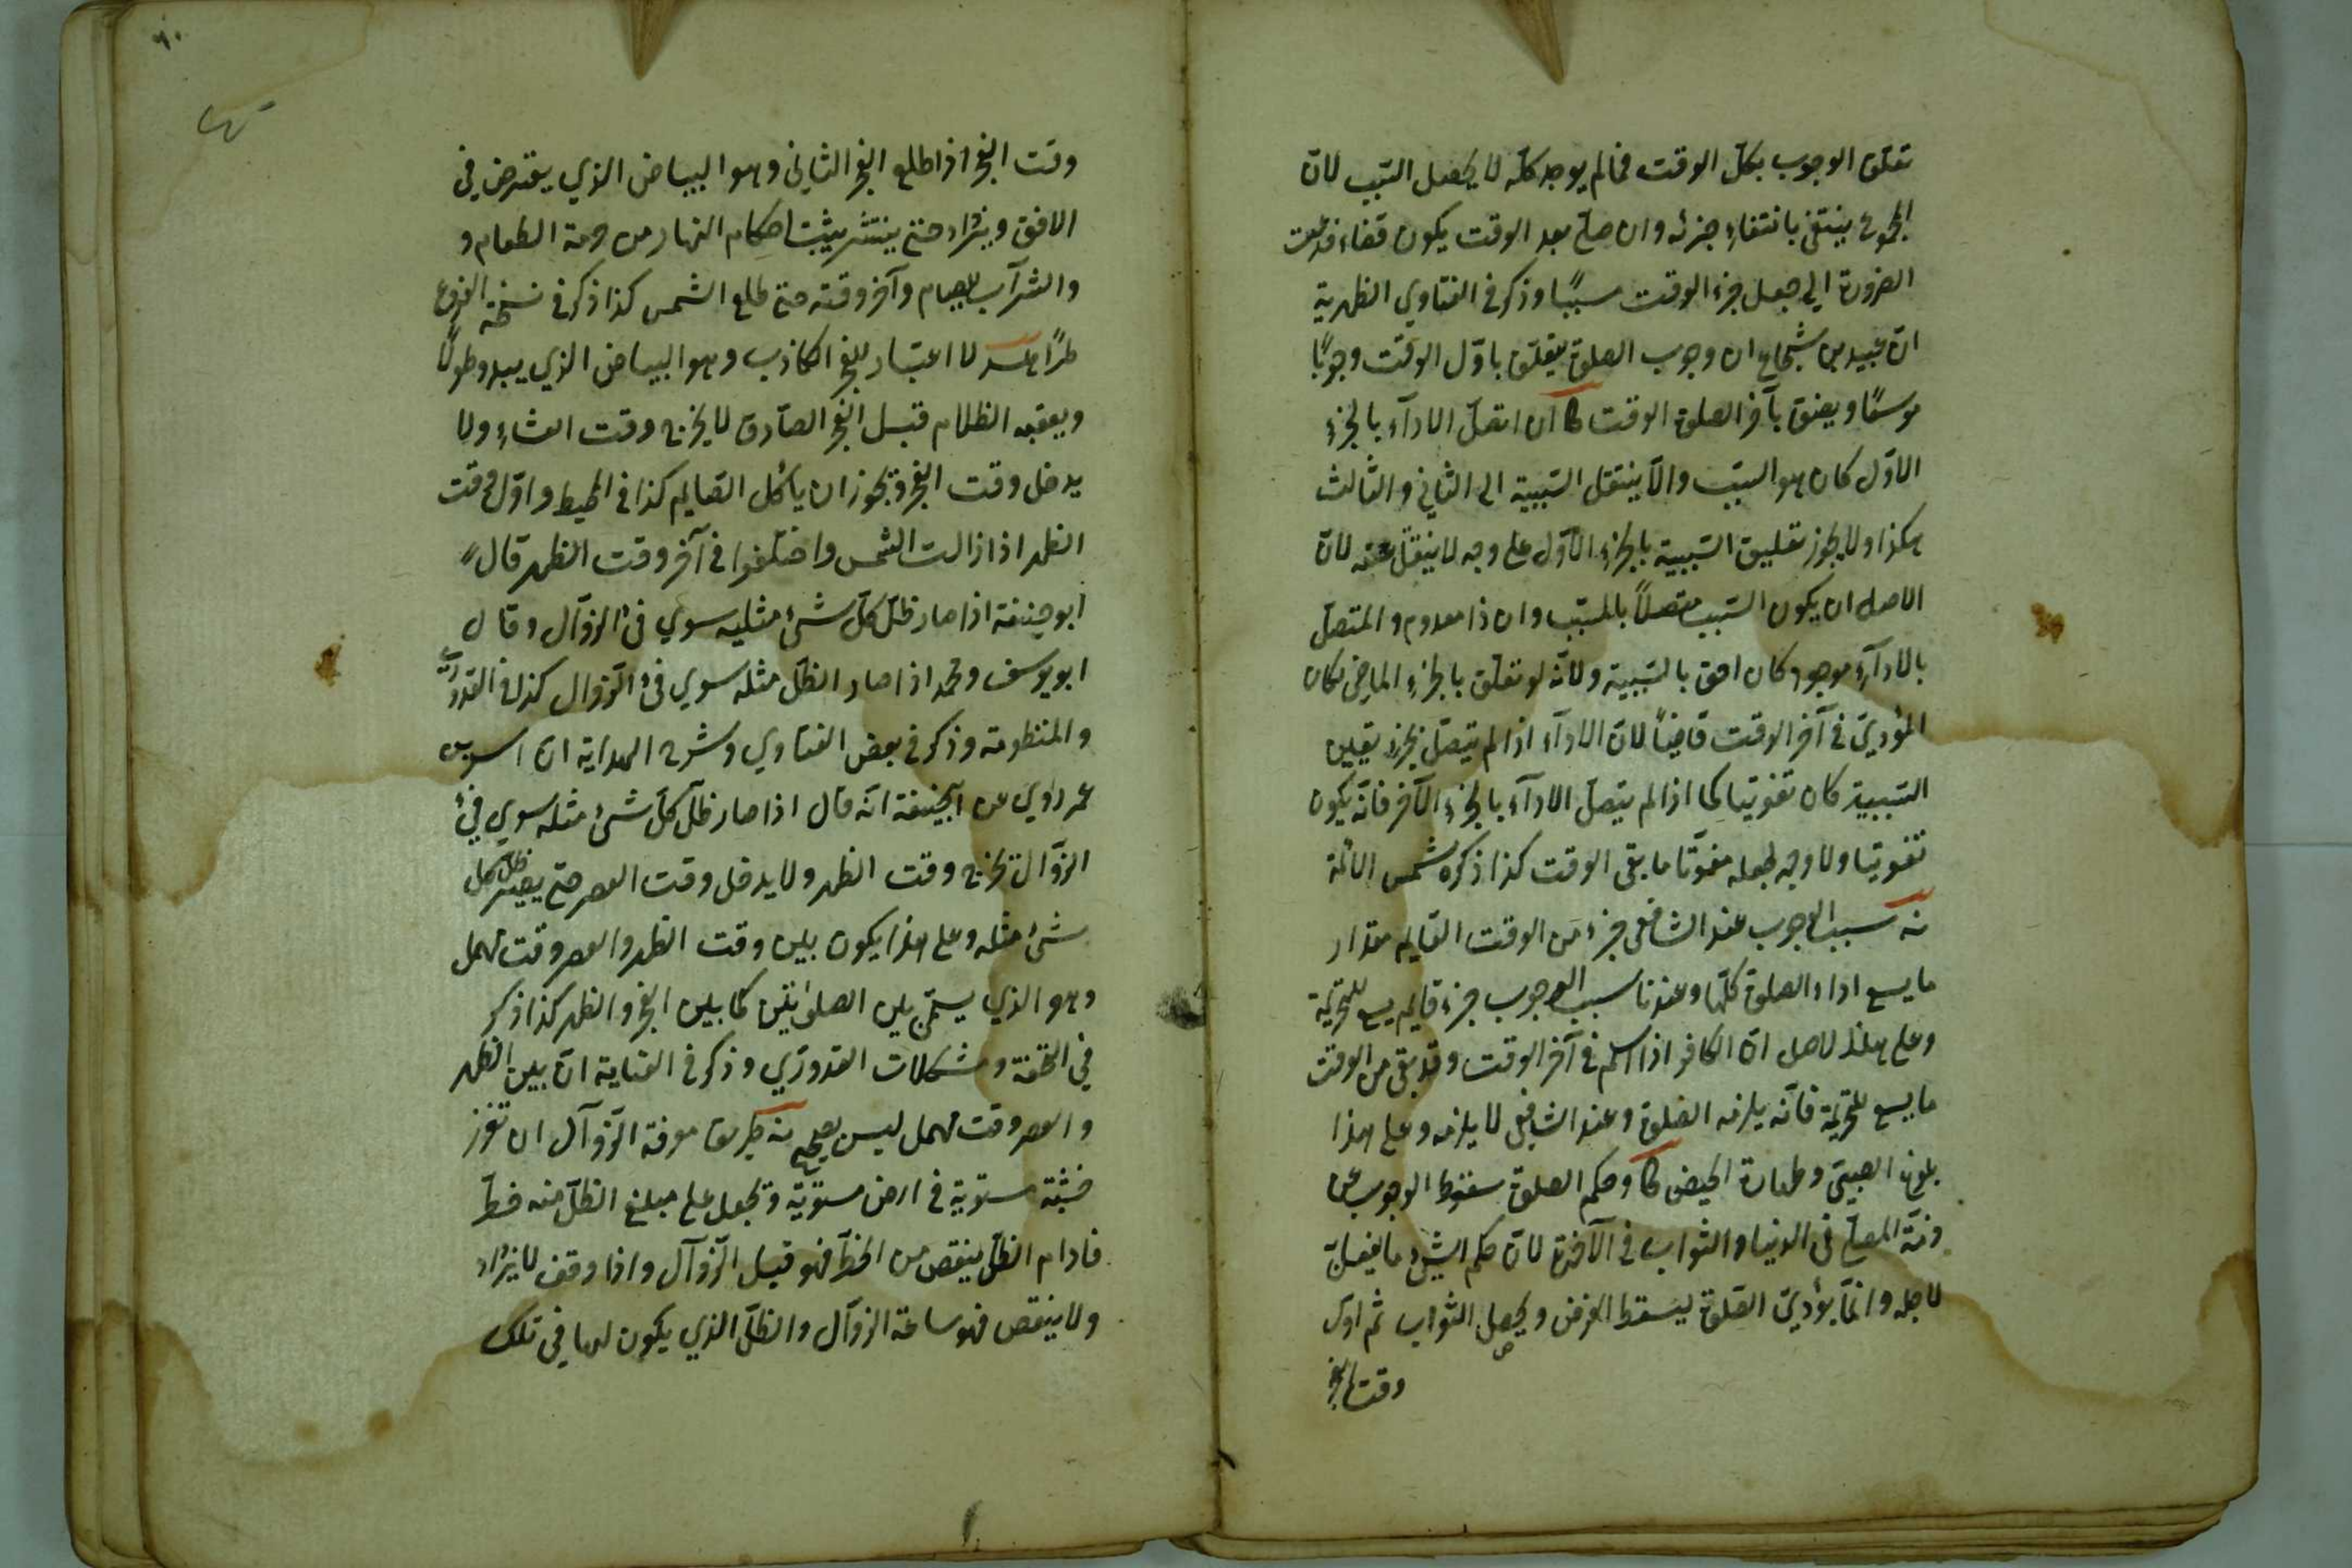 تعلق الوجوب بكل الوقت فمالم يوجد كله لا يحصل السّبب لانّ
المجموع ينتفي بانتفاء جزئه وان صلّى بعد الوقت يكون قضاء فدعت
الضرورة الى جعل جزء الوقت سببًا وذكر في الفتاوي الظهرية
انّ عبيد بن شجاع ان وجوب الصلوة يتعلق باوّل الوقت وجوبًا
موسعًا ويضيق بآخر الصلوة الوقت كا ان اتصل الاداء بالجزء
الاوّل كان هو السبب والّا ينتقل السّببية الى الثاني والثالث
هكذا ولا يجوز تعليق السّببية بالجزء الاوّل على وجه لا ينتقل عنه لانّ
الاصل ان يكون السّبب متصلًا بالمسبّب وان ذا معدوم والمتصل
بالاداء موجود كان احق بالسّببية ولانه لو تعلّق بالجزء الماضي لكان
المؤدي في آخر الوقت قاضيًا لانّ الاداء اذا لم يتصل بجزء يعيّن
السّببية كان تفويتا كما اذا لم يتصل الاداء بالجزء الآخر فانّه يكون
تفويتا ولا وجه لجعله مفوّتا ما بقي الوقت كذا ذكره شمس الائمة
نه سبب الوجوب عند الشافعي جزء من الوقت القايم مقدار
ما يسع اداء الصلوة كلّها وعندنا سبب الوجوب جزء قايم يسع للتحريمة
وعلى هذا الاصل انّ الكافر اذا اسلم في آخر الوقت وقد بقي من الوقت
ما يسع للتحريمة فانّه يلزمه الصّلوة وعند الشافعي لا يلزمه وعلى هذا
بلوغ الصبيّ وطهارة الحيض كا وحكم الصلوة سقوط الوجوب عن
ذمّة المصلّي في الدنيا والثواب في الآخرة لانّ حكم الشيء ما يفعل
لاجله وانّما يؤدي الصّلوة ليسقط الفرض ويحصل الثواب ثم اول
وقت الفجر
وقت الفجر اذا طلع الفجر الثاني وهو البياض الذي يعترض في
الافق ويزداد حتى ينتشر يثبت احكام النهار من حرمة الطعام و
والشراب للصيام وآخر وقته حتى طلع الشمس كذا ذكر في نسخة الفروع
طرًا لا اعتبار للفجر الكاذب وهو البياض الذي يبدو طولًا
ويعقبه الظلام قبل الفجر الصّادق لا يخرج وقت العشاء ولا
يدخل وقت الفجر ويجوز ان يأكل الصّايم كذا في المحيط واوّل وقت
الظهر اذا زالت الشمس واختلفوا في آخر وقت الظهر قال
ابو حنيفة اذا صار ظلّ كلّ شيء مثليه سوي فئ الزوال وقال
ابو يوسف ومحمد اذا صار الظلّ مثله سوي فئ الزّوال كذا في القدوري
والمنظومة وذكر في بعض الفتاوي وشرح الهداية ان اسد بن
عمر روي عن ابي حنيفة انّه قال اذا صار ظلّ كلّ شيء مثله سوي فئ
الزوّال يخرج وقت الظهر ولا يدخل وقت العصر حتى يصير ظلّ كل
شيء مثله وعلى هذا يكون بين وقت الظهر والعصر وقت مهمل
وهو الذي يسمّى بين الصلوتين كما بين الفجر والظهر كذا ذكر
في التحفة ومشكلات القدوري وذكر في العناية انّ بين الظهر
والعصر وقت مهمل ليس بصحيح نه طريق معرفة الزّوال ان تغرز
خشبة مستوية في ارض مستويّة وتجعل على مبلغ الظلّ منه خطّ
فمادام الظلّ ينقص من الخطّ فهو قبل الزّوال واذا وقف لا يزداد
ولا ينقص فهو ساعة الزوال والظلّ الذي يكون لها في تلك